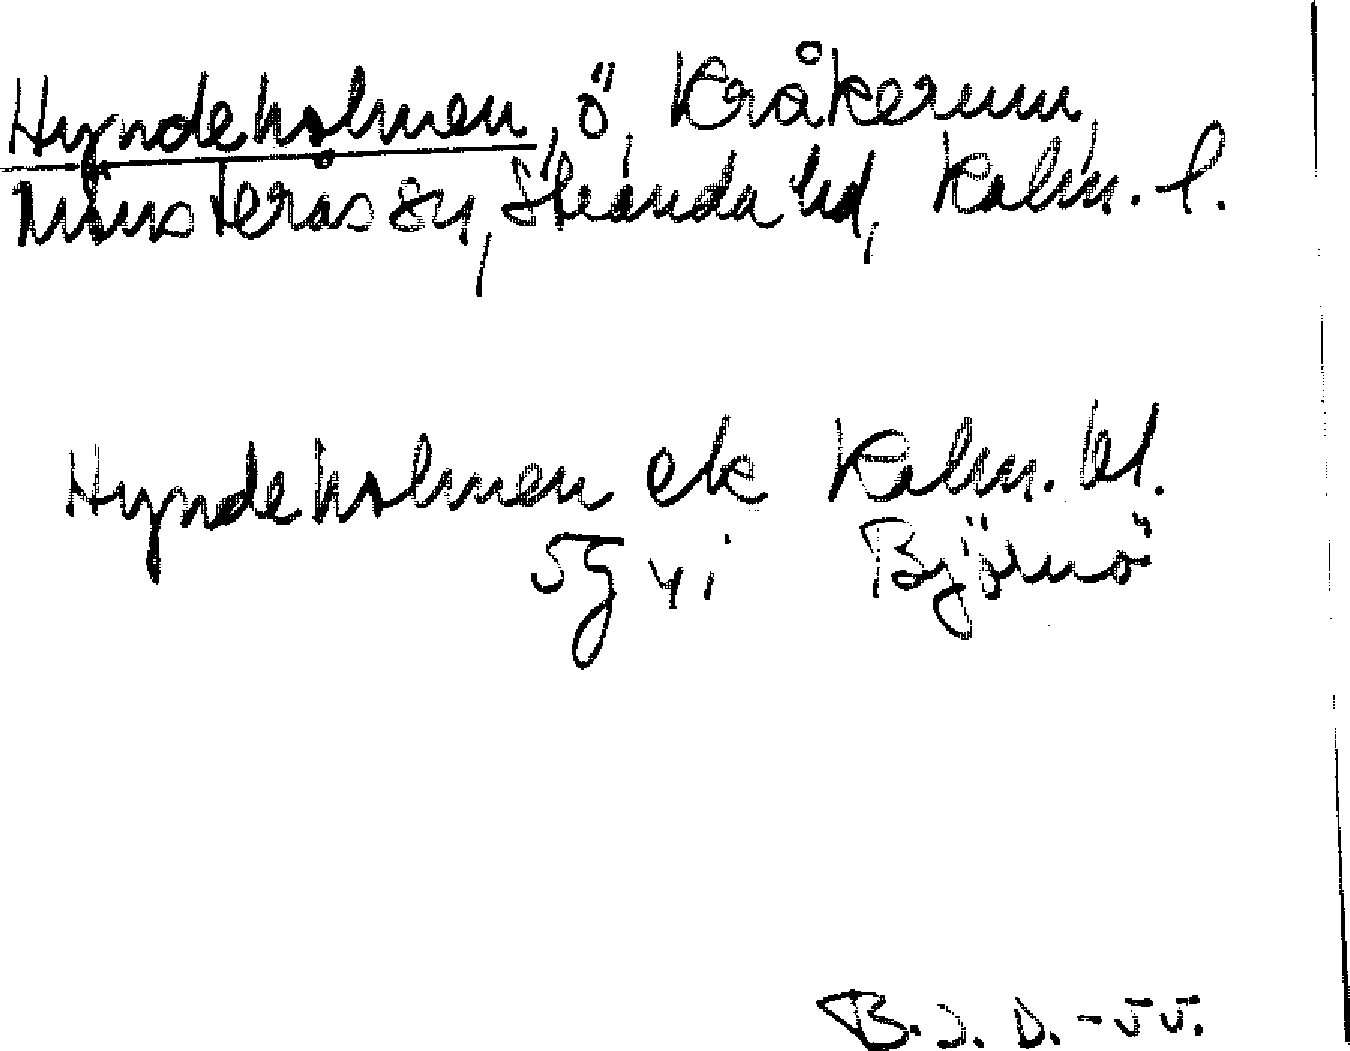 Hyndeholmen, ö, Kråkerum,
Mönsterås sn, Stranda hd, Kalm. l.
Hyndeholmen ek Kalm. bl.
5g 4i Björnö
B. J. D. -55.